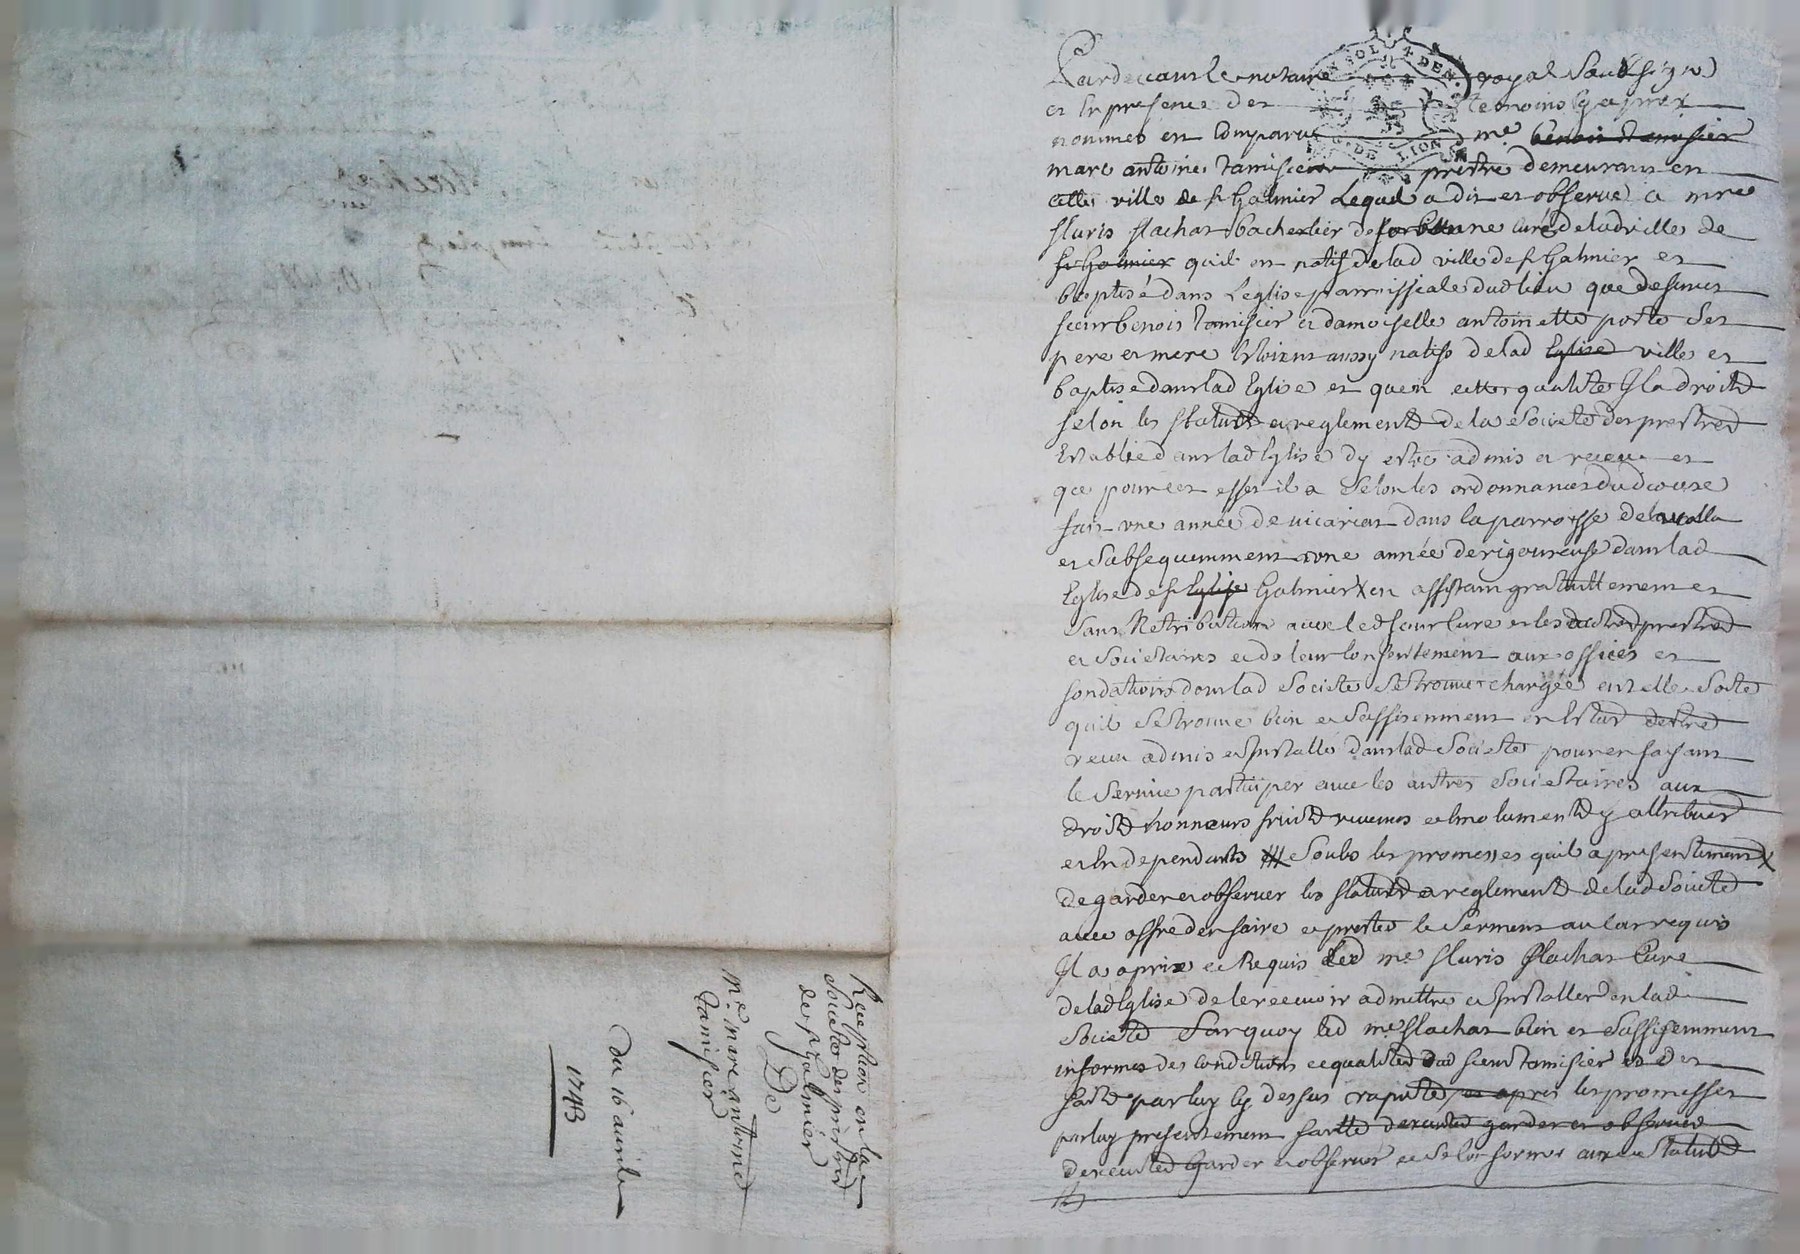 Pardevant le notaire royal Soubsigné
et En presence des temoins Cy apres
nommes est Comparu me benoit tamisier
marc antoine tamisier prestre demeurant en
cette ville de st Galmier Lequel a dit et observé a mre
fluris flachat bacheslier de sorbonne curé de lad ville de
st Galmier quil est natif de lad ville de st Galmier et
baptisé dans Leglise parroissiale dud lieu que defunct
sieur benoit tamisier et damoiselle antoinette porte Ses
pere et mere Estoient aussy natifs de lad Eglise ville et
baptise dans lad Eglise et quen cette qualite Il a droit
selon les statuts et reglements de la Societé des prestres
Establie dans lad Eglise dy estre admis et receu et
que pour cet effet il a Selon les ordonnances du diocese
fait une année de vicariat dans la parroisse de lavalla
et Subsequemment une année de rigoureuse dans lad
Eglise de st Eglise Galmier en assistant gratuittement et
Sans Retribution avec led sieur Cure et les autres prestres
et Societaires et de leur Consentement aux offices et
fondations dont lad Societe Se trouve chargée en telle Sorte
quil Se trouve bien et Suffisemment en Estat destre
receu admis et Installé dans lad Societe pour en faisant
le Service participer avec les autres Societaires aux
droits honneurs fruits revenus et Emoluments y attribues
et En dependants Soubs les promesses quil a presentement
de garder et observer les statuts et reglements de lad Societe
avec offre den faire et prester le Serment au cas requis
Il a aprix et Requis led me fluris flachat Cure
de lad Eglise de le recevoir admettre et Installer en lad
Societe Sur quoy led me flachat bien et Suffisemment
informes des conditions et qualites dud sieur tamisier et des
faits par luy cy dessus rapportes et apres les promesses
par luy presentement faitte dexecuter garder et observer
dexecuter Garder et observer et Se Conformer aux statuts
Reception en la
Societe des prestres
de st Galmier
De
Me marc antoine
tamisier
du 16 avrile
1743